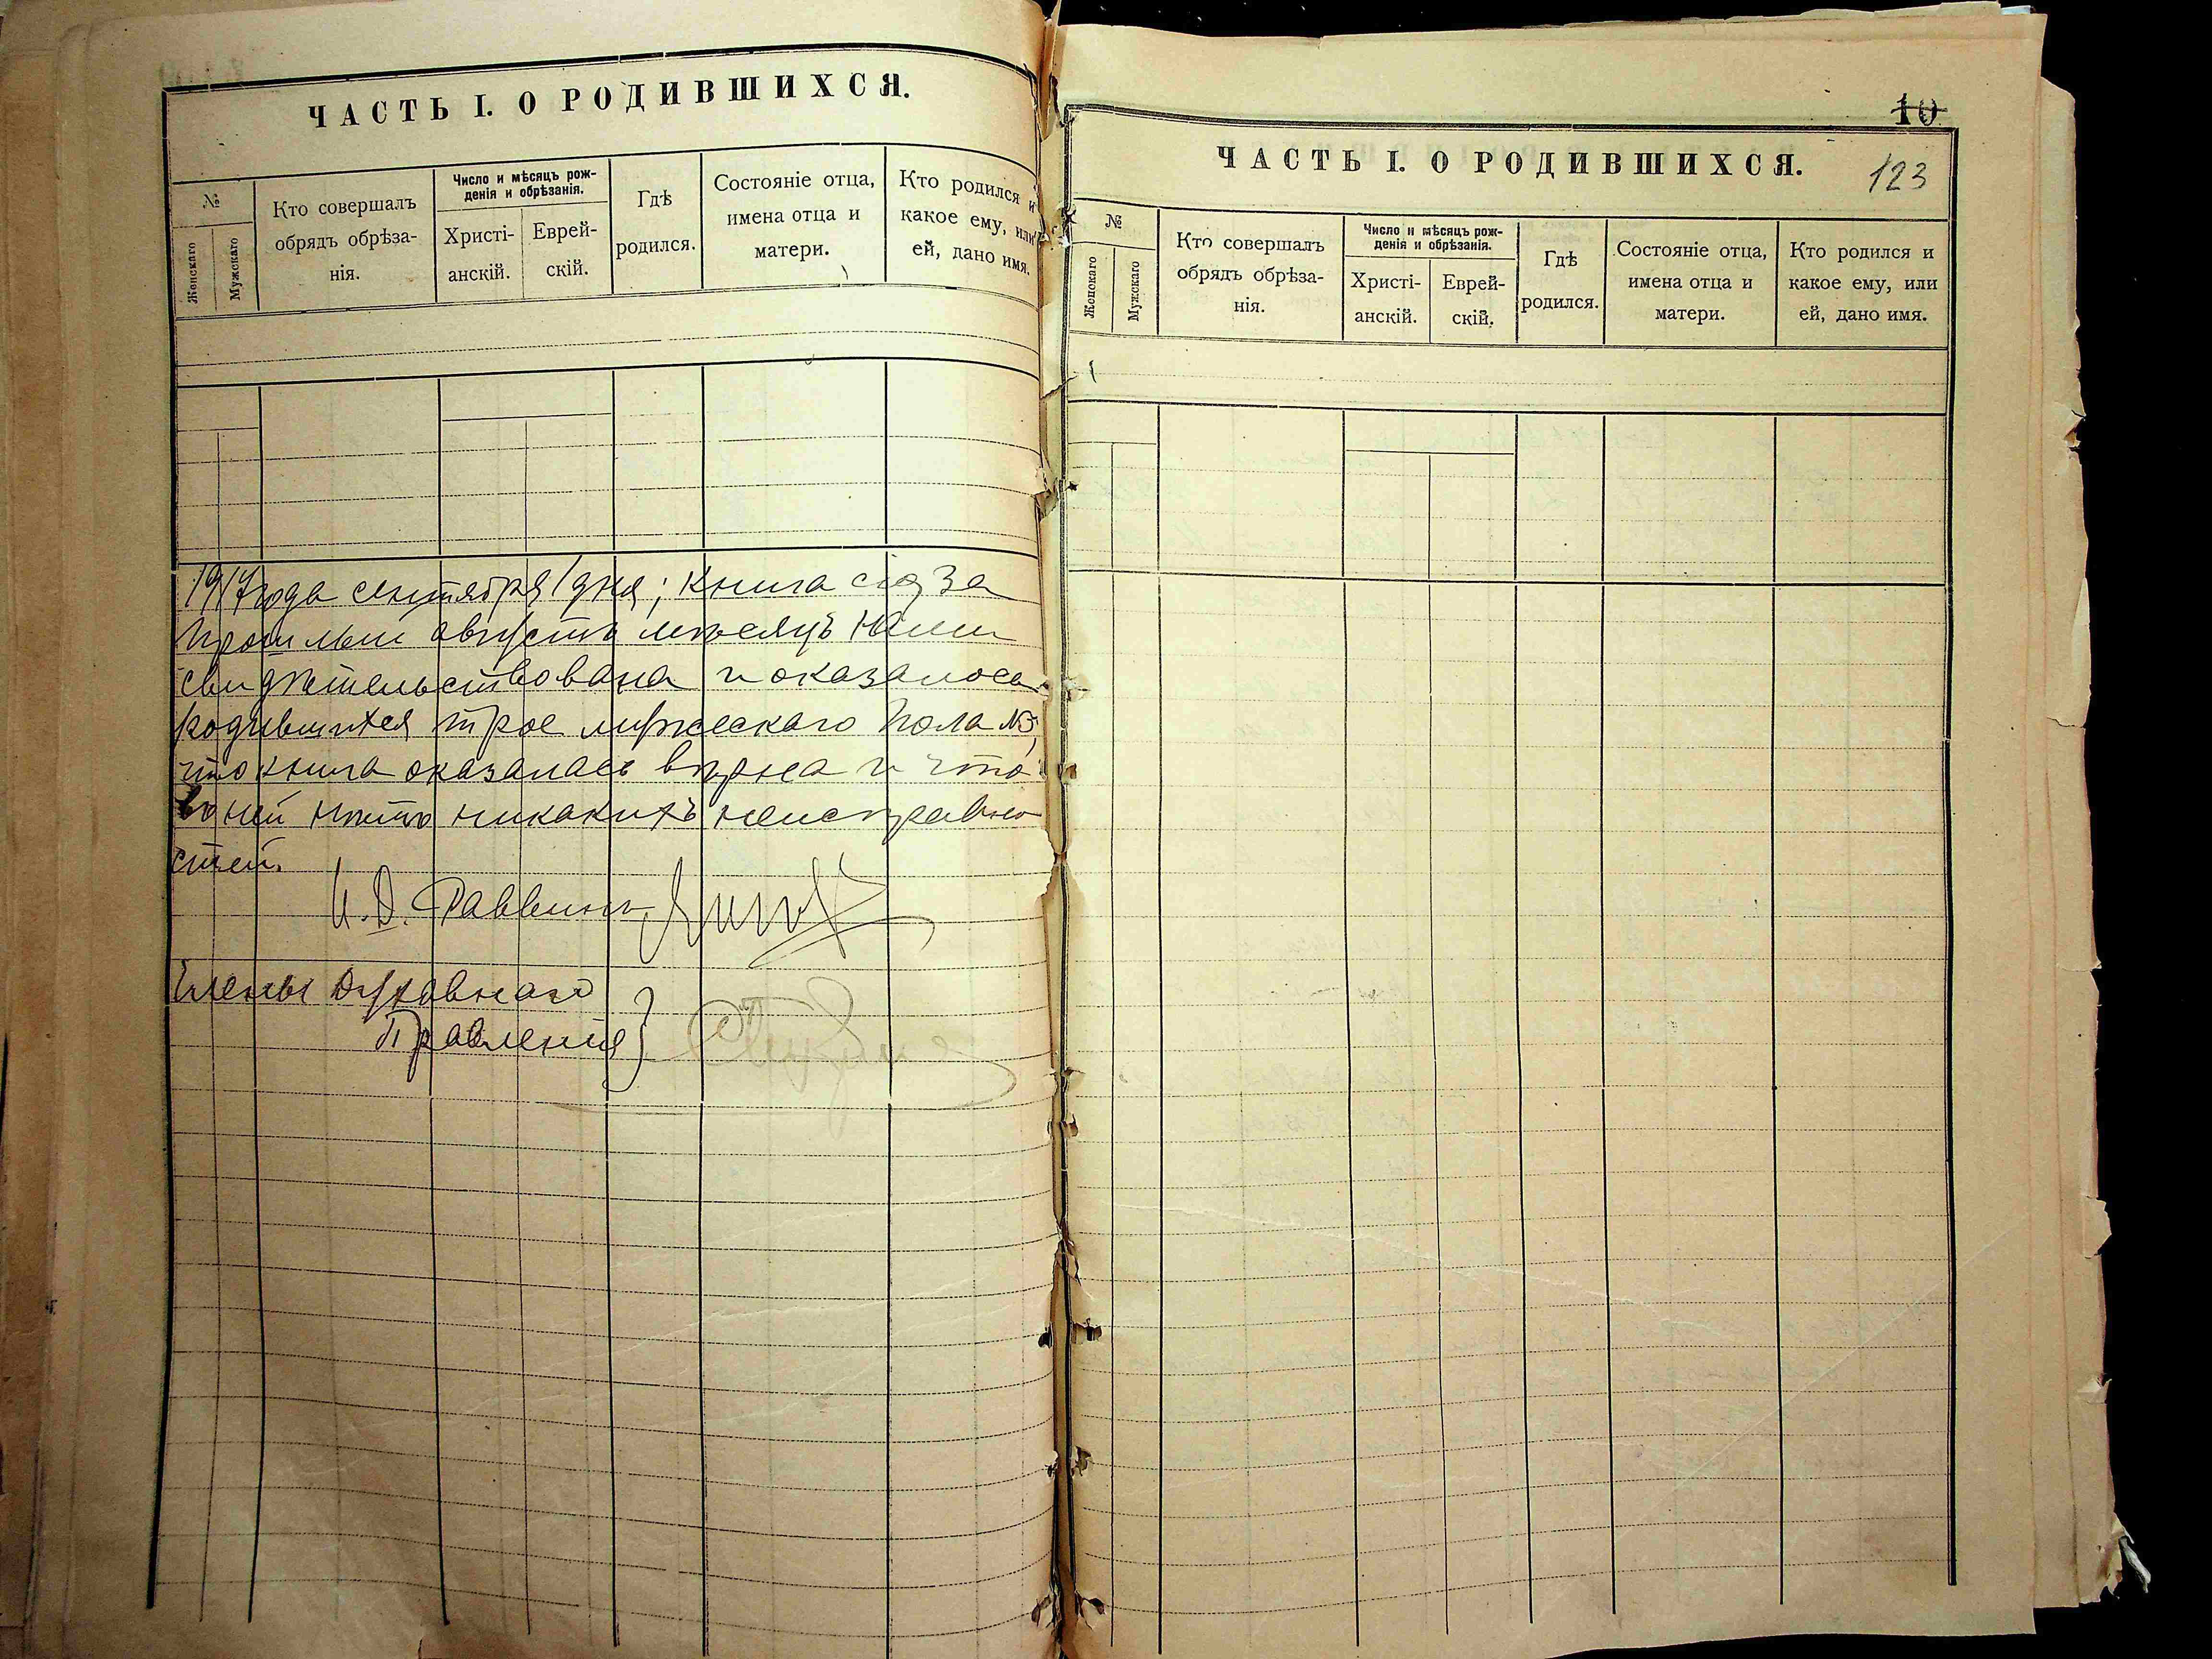 ЧАСТЬ I. О РОДИВШИХСЯ.
№
Женскаго
Мужскаго
Кто совершалъ
обрядъ обрѣза-
нія.
Число и мѣсяцъ рож-
денія и обрѣзанія.
Христі-
анскій.
Еврей-
скій.
Гдѣ
родился.
Состояніе отца,
имена отца и
матери.
Кто родился и
какое ему, или
ей, дано имя.
1917 года сентября 1 дня; книга сія за
прошлый августъ мѣсяцъ нами
свидѣтельствована и оказалось
родившихся трое мужескаго пола №3,
что книга оказалась вѣрна и что
въ ней нѣтъ никакихъ неисправно
стей.
И. Д. Раввина
Члены Духовнаго
Правленія }
10
ЧАСТЬ I. О РОДИВШИХСЯ.
123
№
Женскаго
Мужскаго
Кто совершалъ
обрядъ обрѣза-
нія.
Число и мѣсяцъ рож-
денія и обрѣзанія.
Христі-
анскій.
Еврей-
скій.
Гдѣ
родился.
Состояніе отца,
имена отца и
матери.
Кто родился и
какое ему, или
ей, дано имя.